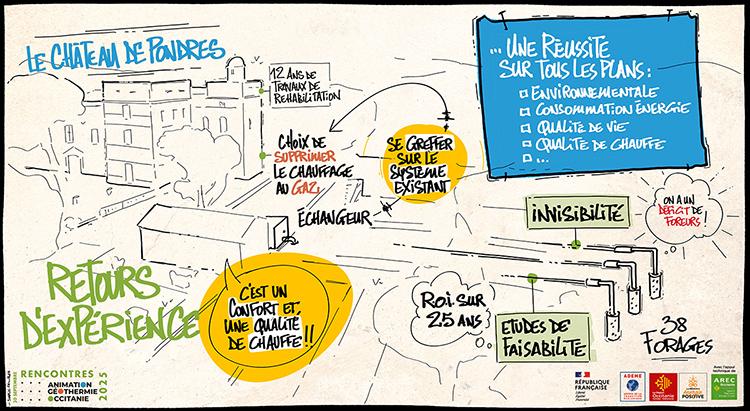 LE CHÂTEAU DE PONDRES
12 ANS DE
TRAVAUX DE
REHABILITATION
CHOIX DE
SUPPRIMER
LE CHAUFFAGE
AU GAZ
SE GREFFER
SUR LE
SYSTEME
EXISTANT
ÉCHANGEUR
... UNE RÉUSSITE
SUR TOUS LES PLANS :
ENVIRONNEMENTALE
CONSOMMATION ÉNERGIE
QUALITÉ DE VIE
QUALITÉ DE CHAUFFE
...
INVISIBILITÉ
ON A UN
DÉFICIT DE
FOREURS !
RETOURS
D'EXPÉRIENCE
C'EST UN
CONFORT ET
UNE QUALITÉ
DE CHAUFFE !!
R.O.I. SUR
25 ANS
ETUDES DE
FAISABILITÉ
38
FORAGES
RENCONTRES
SEPTEMBRE
2025
ANIMATION
GÉOTHERMIE
OCCITANIE
RÉPUBLIQUE
FRANÇAISE
Liberté
Égalité
Fraternité
ADEME
Occitanie
POSITIVE
Avec l'appui
technique de
AREC